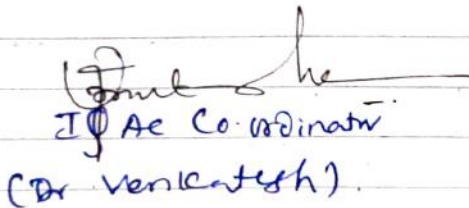 IQAC Co-ordinator
(Dr Venkatesh).